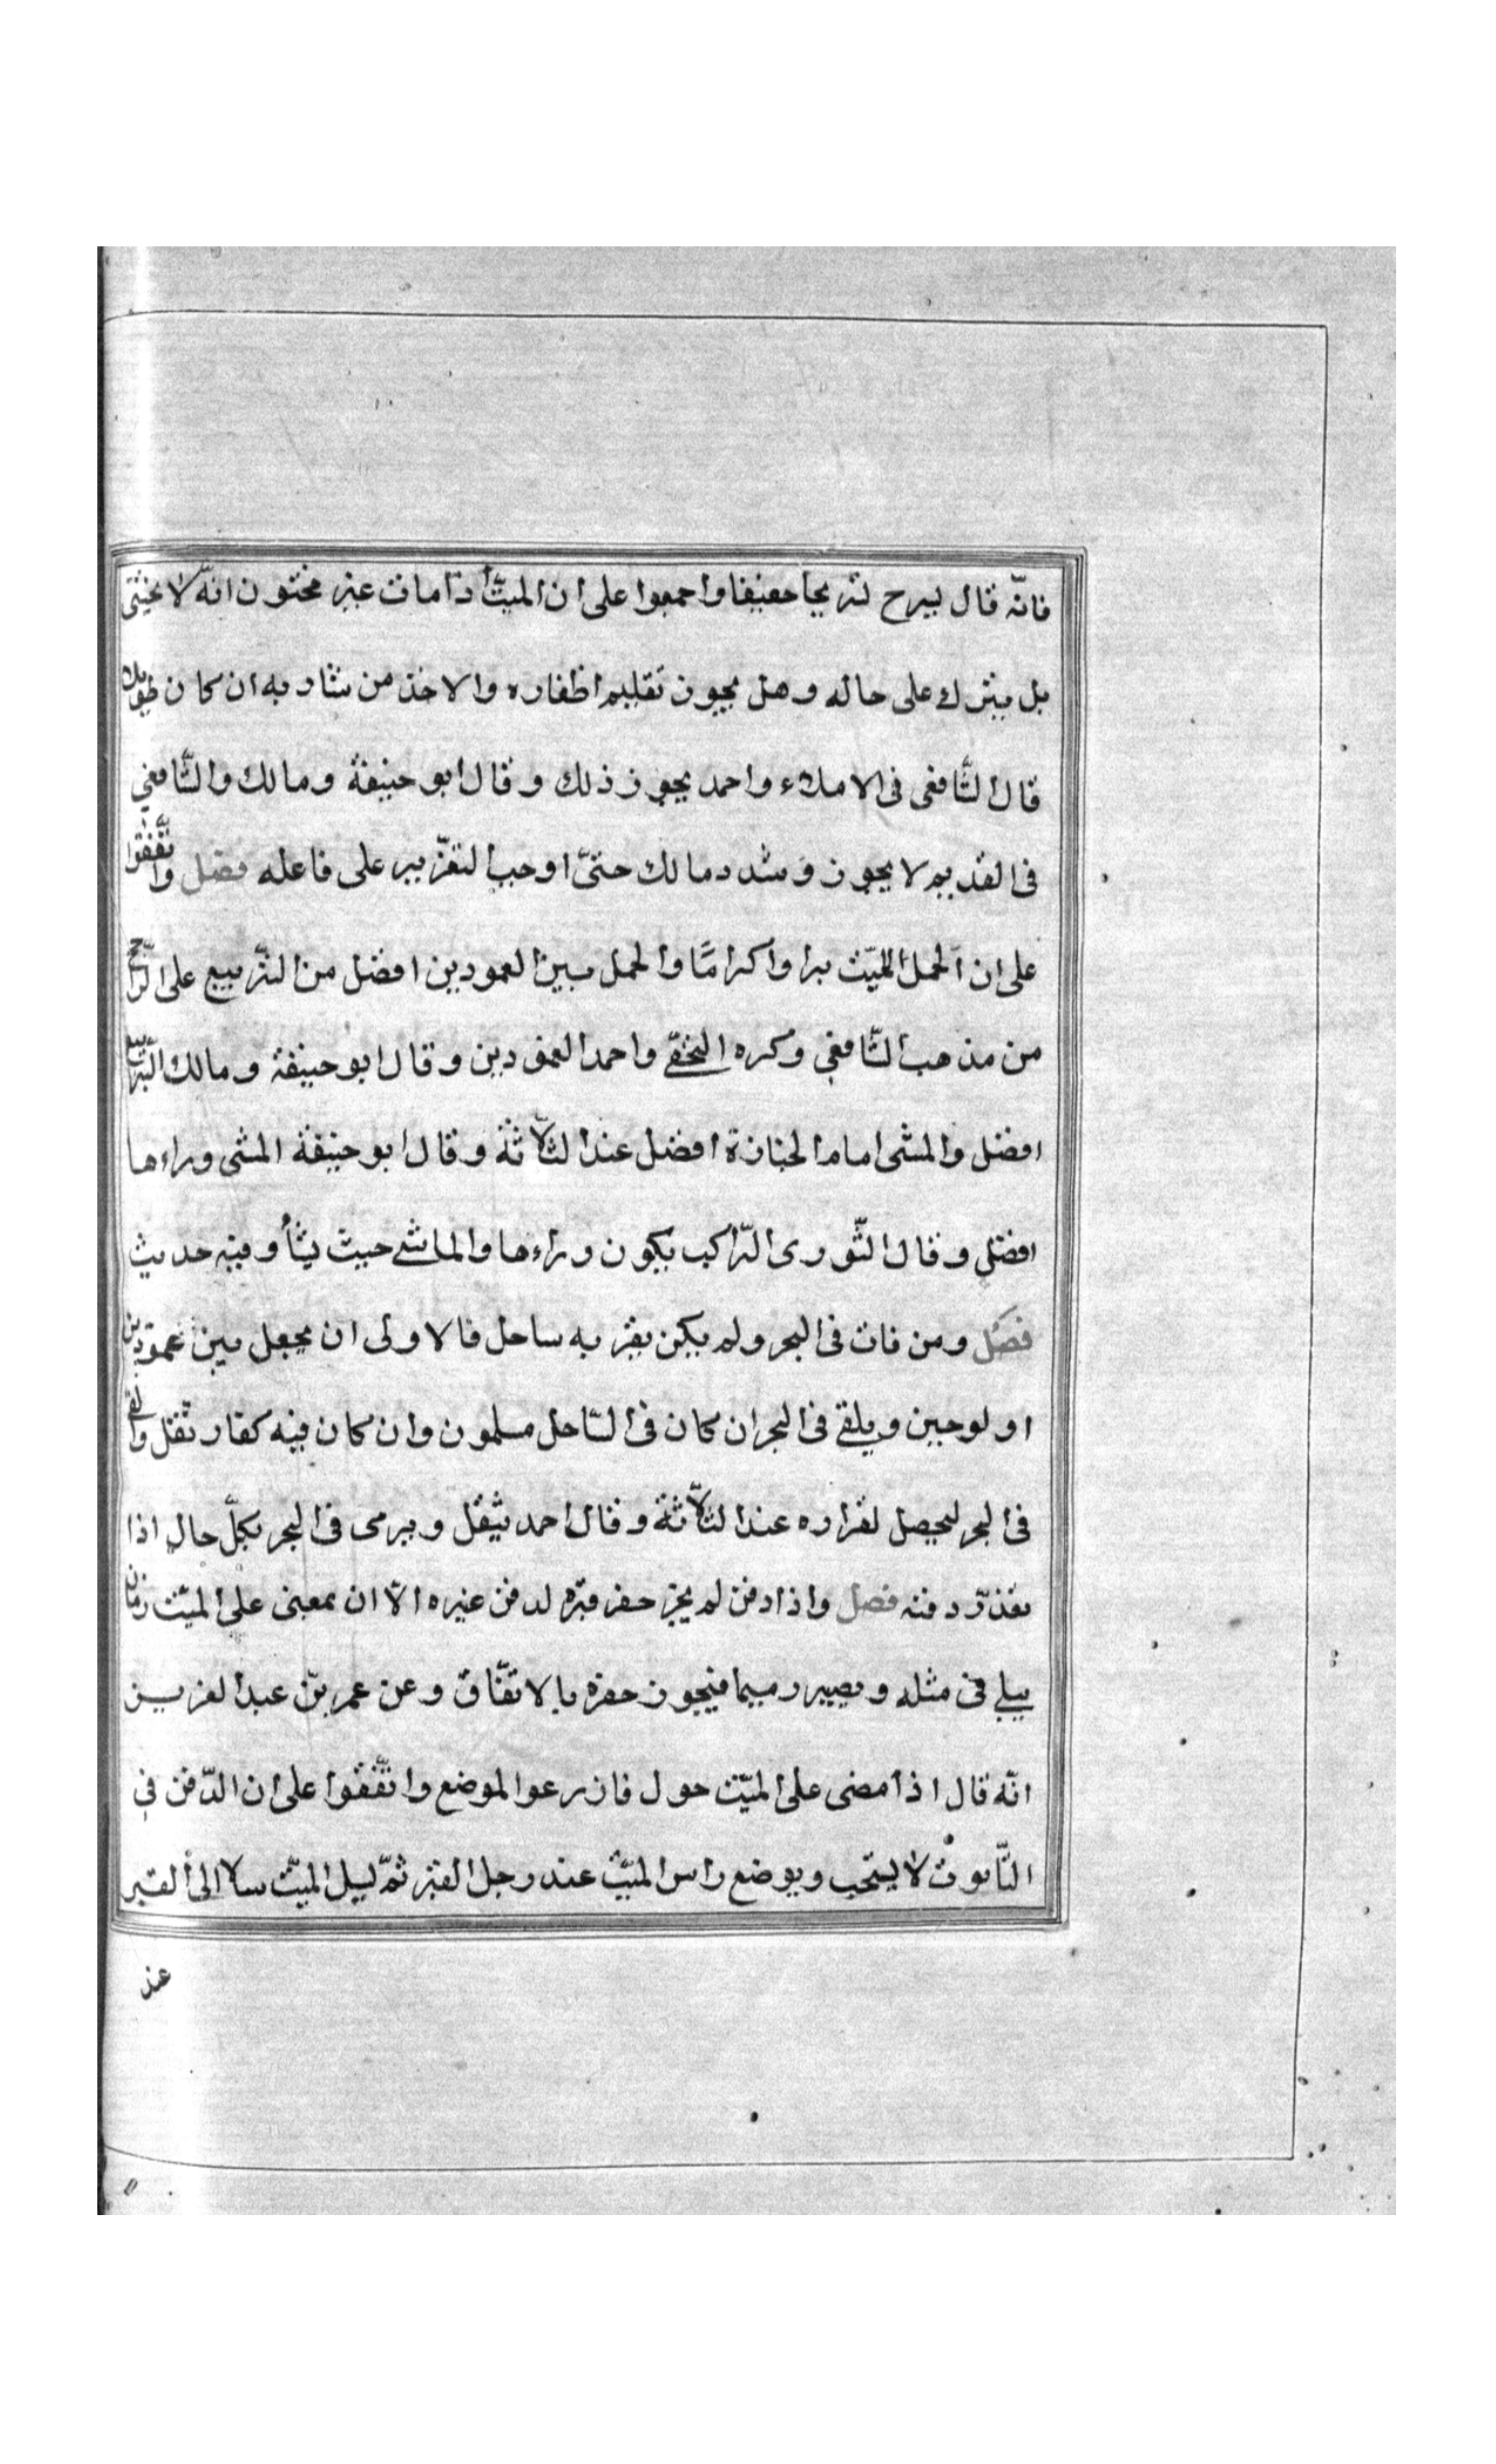 فانّه قال يسرح تسريحا خفيفا واجمعوا على ان الميّت اذا مات غير مختون انّه لا يختن
بل يترك على حاله وهل يجوز تقليم اظفاره والاخذ من شاربه ان كان طويلا
قال الشّافعى فى الاملاء واحمد يجوز ذلك وقال ابو حنيفة ومالك والشّافعي
فى القديم لا يجوز وشدد مالك حتىّ اوجب التعزّير على فاعله فصل واتّفقوا
على ان الحمل الميّت برا واكرامّا والحمل بين العمودين افضل من التّربيع على الرّاجح
من مذهب الشّافعي وكره النخعّي واحمد العمودين وقال ابو حنيفة ومالك التّربيع
افضل والمشى امام الجنازة افضل عند الثّلاثة وقال ابو حنيفة المشى وراءها
افضل وقال الثّورى الرّاكب يكون وراءها والماشي حيث يشأ وفيه حديث
فصل ومن مات فى البحر ولم يكن بقربه ساحل فالاولى ان يجعل بين عمودين
او لوحين ويلقي فى البحر ان كان فى السّاحل مسلمون وان كان فيه كفار ثقل والقى
فى البحر ليحصل لقراره عند الثّلاثة وقال احمد يثقل ويرمى فى البحر بكلّ حال اذا
تعذرّ دفنه فصل واذا دفن لم يجز حفر قبره لدفن غيره الّا ان يمضى على الميّت زمان
يبلي فى مثله ويصير رميما فيجوز حفره بالاتفّاق وعن عمر بن عبد العزيز
انّه قال اذا مضى على الميّت حول فازرعوا الموضع واتّفقوا على ان الدّفن في
التّابوت لا يستحب ويوضع راس الميّت عند رجل القبر ثمّ يسل الميّت سلا الى القبر
عند